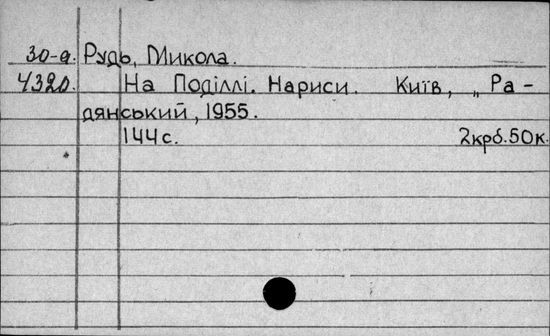 30-а. Рудь, Микола.
4320. На Поділлі. Нариси. Київ, „Ра-
дянський, 1955.
144с. 2крб.50к.